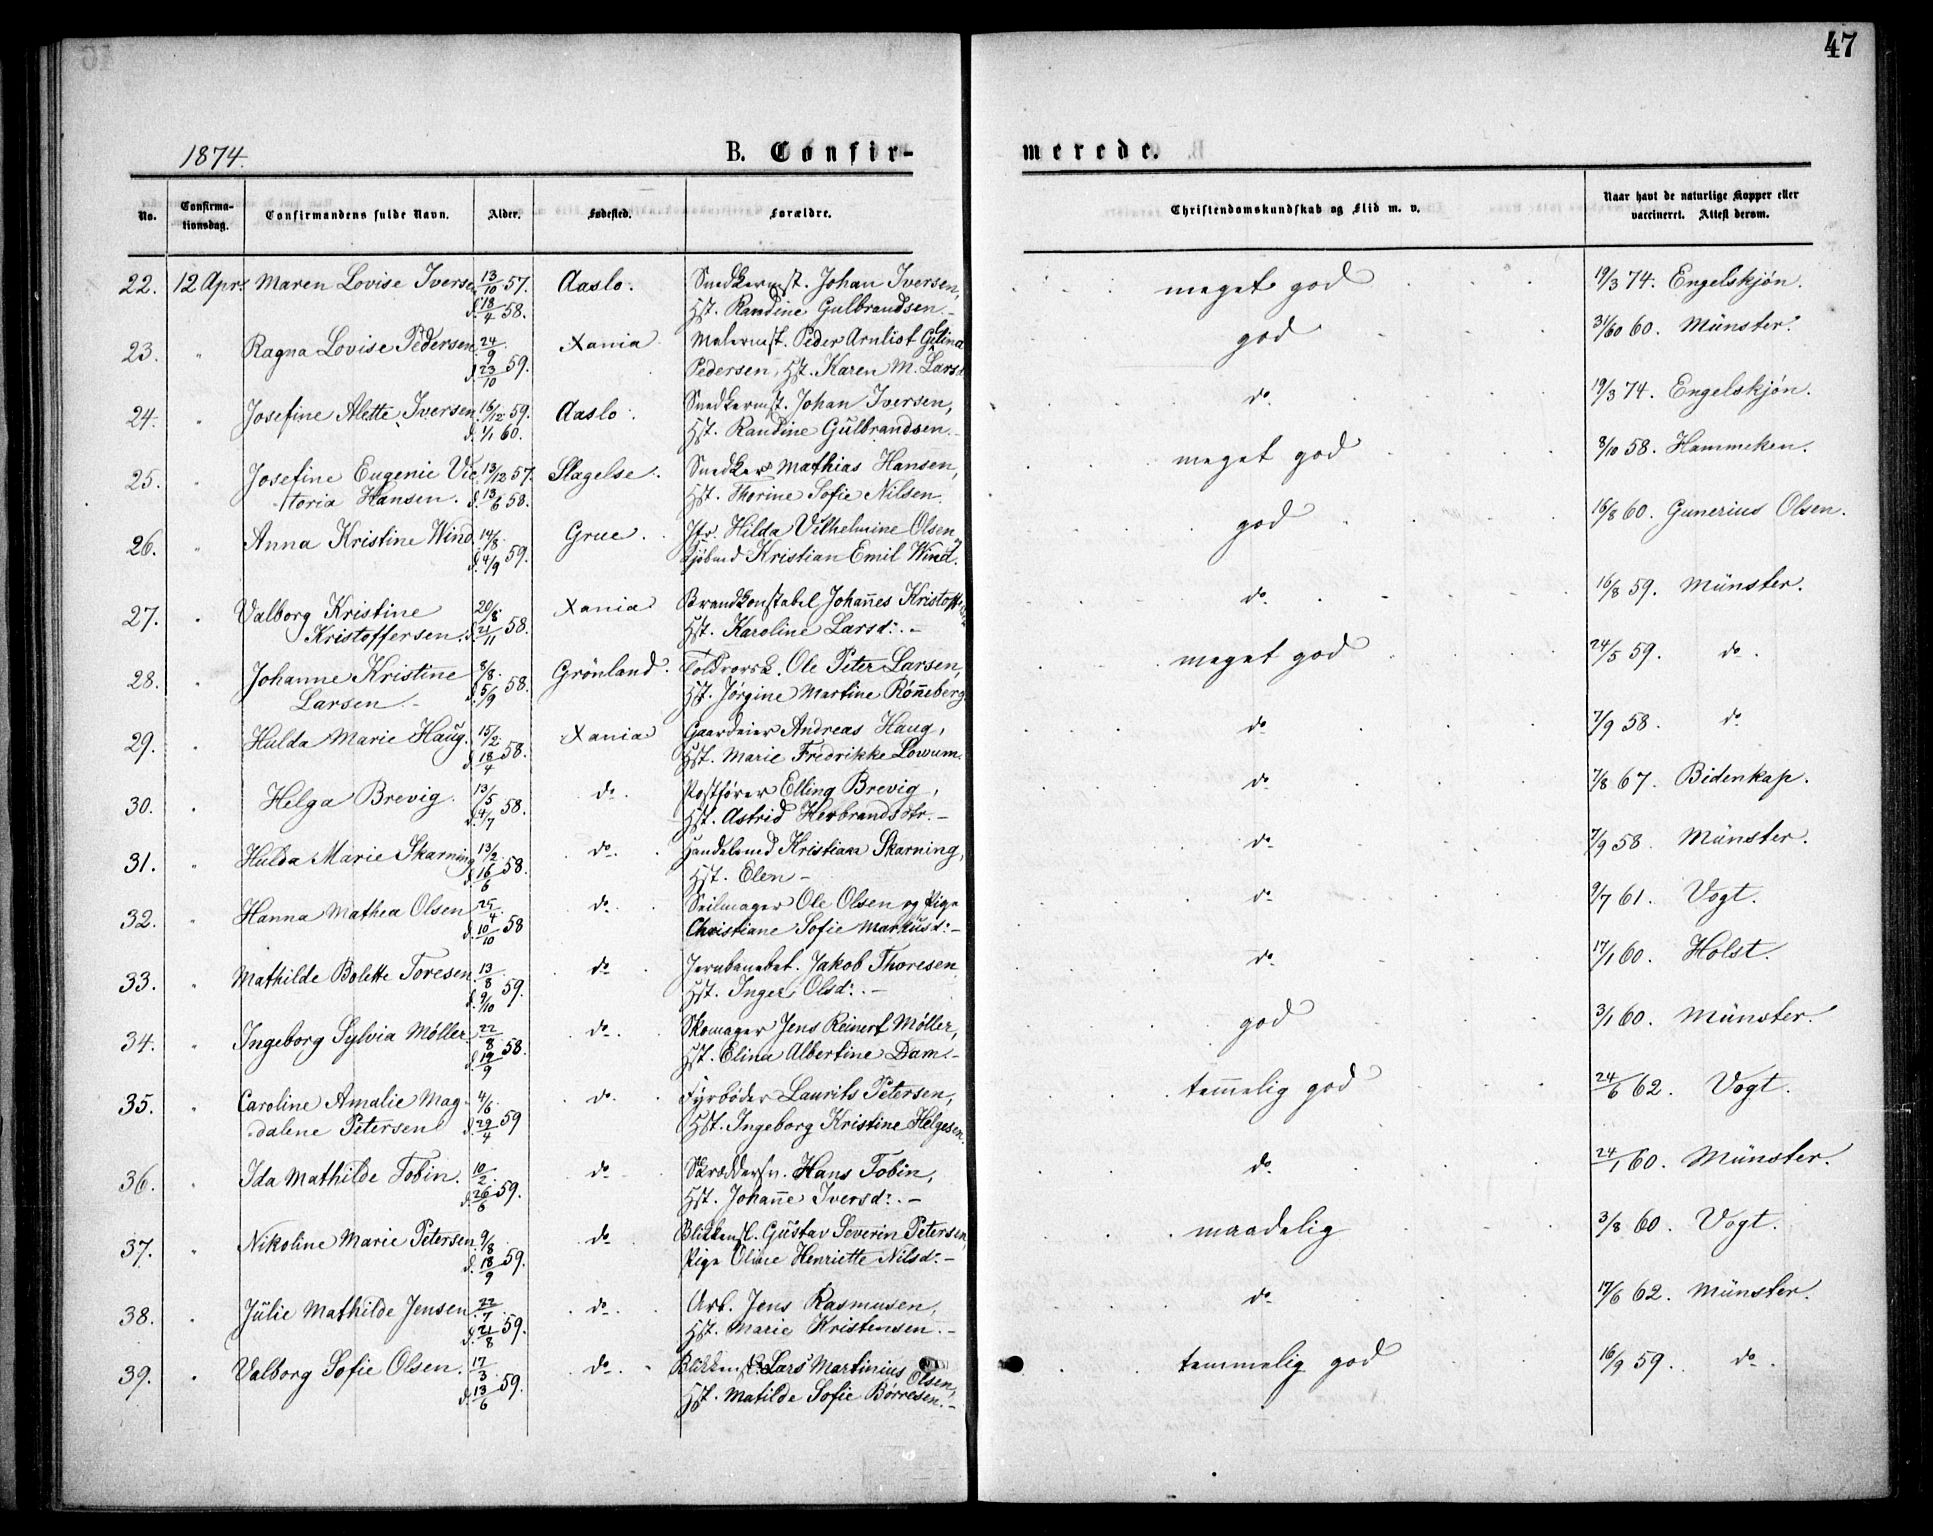 47
1874.
B. Confir-
merede.
No.
Confirma-
tionsdag.
Confirmandens fulde Navn.
Alder.
Fødested.
Forældre.
Christendomskundskab og Flid m. v.
Naar havt de naturlige Kopper eller
vaccineret. Attest derom.
22. 12 Apr. Maren Lovise Iversen 13/10 57. Aaslo. Snedkermst. Johan Iversen, meget god 19/3 74. Engelskjøn.
d. 18/4 58. Hst. Randine Gulbrandsen.
23. " Ragna Lovise Pedersen 24/9 Xania Malermst. Peder Arnlist Gelina god 60. Münster.
d. 23/10 59. Pedersen, Hst. Karen M. Larsd
24. " Josefine Alette Iversen 16/12 59. Aaslo. Snedkermst. Johan Iversen, do 19/3 74. Engelskjøn.
d. 1/1 60. Hst. Randine Gulbrandsen.
25. " Josefine Eugenie Vic 13/12 57. Slagelse. Snedker Mathias Hansen, meget god 8/10 58. Hammeken.
toria Hansen. d. 13/6 58. Hst. Thorine Sofie Nilsen.
26. " Anna Kristine Wind 14/8 Grue. Jfr. Hilda Vilhelmine Olsen god 16/8 60. Gunerius Olsen.
d. 4/9 59. Kristian Emil Wind.
27. " Valborg Kristine 20/8 Xania Brandkonstabel Johañes Kristoff do 16/8 59. Münster.
Kristoffersen. d. 21/11 58. Hst. Karoline Larsd:. -
28. " Johanne Kristine 8/8 Grönland. Toldrorsk. Ole Peter Larsen, meget god 24/5 59. do.
Larsen - d. 5/9 58. Hst. Jørgine Martine Røñeberg
29. " Hulda Marie Haug. 15/2 Xania Gaardeier Andreas Haug, do 7/9 58. do
d. 18/4 58. Hst. Marie Fredrikke Lowum.
30. " Helga Brevig. 13/5 do Postfører Elling Brevig, do 7/8 67. Bidenkap.
d. 4/7 58. Hst. Astrid Herbrandsdtr. -
31. " Hulda Marie Skarning 13/2 do Handelsmd Kristian Skarning, do 7/9 58. Münster.
d. 16/6 58. Hst. Elen -
32. " Hanna Mathea Olsen 25/4 do Seilmager Ole Olsen og Pige do 9/7 61. Vogt.
d. 10/10 58 Christiane Sofie Markusd: -
33. " Mathilde Bolette Toresen 13/8 do Jernbanebet. Jakob Thoresen do 17/1 60. Holst.
d. 9/10 59. Hst. Inger Olsd:. -
34. " Ingeborg Sylvia Møller 22/8 do Skomager Jens Reinert Møller, god 3/1 60. Münster.
d. 19/9 58. Hst. Elina Albertine Dam. -
35. " Caroline Amalie Mag- 4/6 do Fyrbøder Laurits Petersen, tem̄elig god 24/6 62. Vogt.
dalene Petersen d. 29/4 59 Hst. Ingeborg Kristine Helgesen.
36. " Ida Mathilde Tobin. 10/2 do Skræddersv. Hans Tobin, do 24/1 60. Münster.
d. 26/6 59. Hst. Johañe Iversd:. -
37. " Nikoline Marie Petersen 9/8 do Blikkensl. Gustav Severin Petersen, maadelig 3/8 60. Vogt.
d. 18/9 59. Pige Oline Henriette Nilsd: -
38. " Julie Mathilde Jensen 22/7 do Arb. Jens Rasmusen, do 17/6 62. Münster.
d. 21/8 59. Hst. Marie Kristensen. -
39. " Valborg Sofie Olsen. 17/3 do Blikkensl. Lars Martinius Olsen, temmelig god 16/9 59. do.
d. 13/6 59. Hst. Matilde Sofie Børresen. -